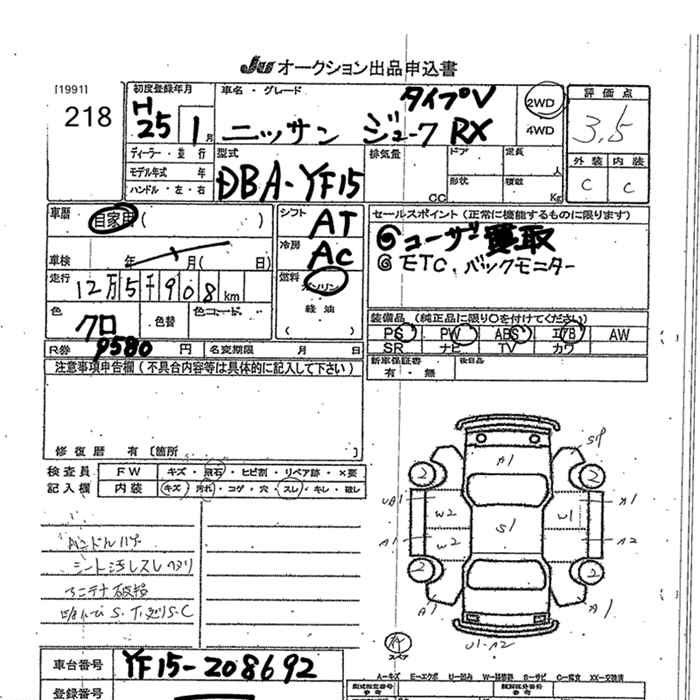 JU オークション出品申込書
[1991]
218
初度登録年月
H
25 1 月
車名・グレード
タイプV
ニッサン ジューク RX
2WD
4WD
評価点
3.5
外装 内装
C C
ディーラー・並行
モデル年式 年
ハンドル・左・右
型式
DBA-YF15
排気量
CC
ドア
形状
定員
人
積載
Kg
車歴
自家用 ( )
車検 年 月 ( 日)
走行
12万5千908km
色
クロ
色替
色コード
シフト
AT
冷房
AC
燃料
ガソリン
軽油
( )
セールスポイント (正常に機能するものに限ります)
◎ユーザー買取
◎ETC、バックモニター
装備品 (純正品に限り○を付けてください)
PS PW ABS エアB AW
SR ナビ TV カワ
R券 9580 円 名変期限 月 日
新車保証書
有・無
後日品
注意事項申告欄 (不具合内容等は具体的に記入して下さい)
修復歴 有 [箇所 ]
検査員
記入欄
FW キズ・飛石・ヒビ割・リペア跡・×要
内装 キズ・汚れ・コゲ・穴・スレ・キレ・破し
シート汚レスレヘタリ
アンテナ破損
A1
S1
W2
W2
U1
2
2
2
2
A1
A1
A2
A1
A1
U1・A2
車台番号 YF15-208692
登録番号
A-キズ E-エクボ U-凹み S-サビ C-腐食 XX-交換済